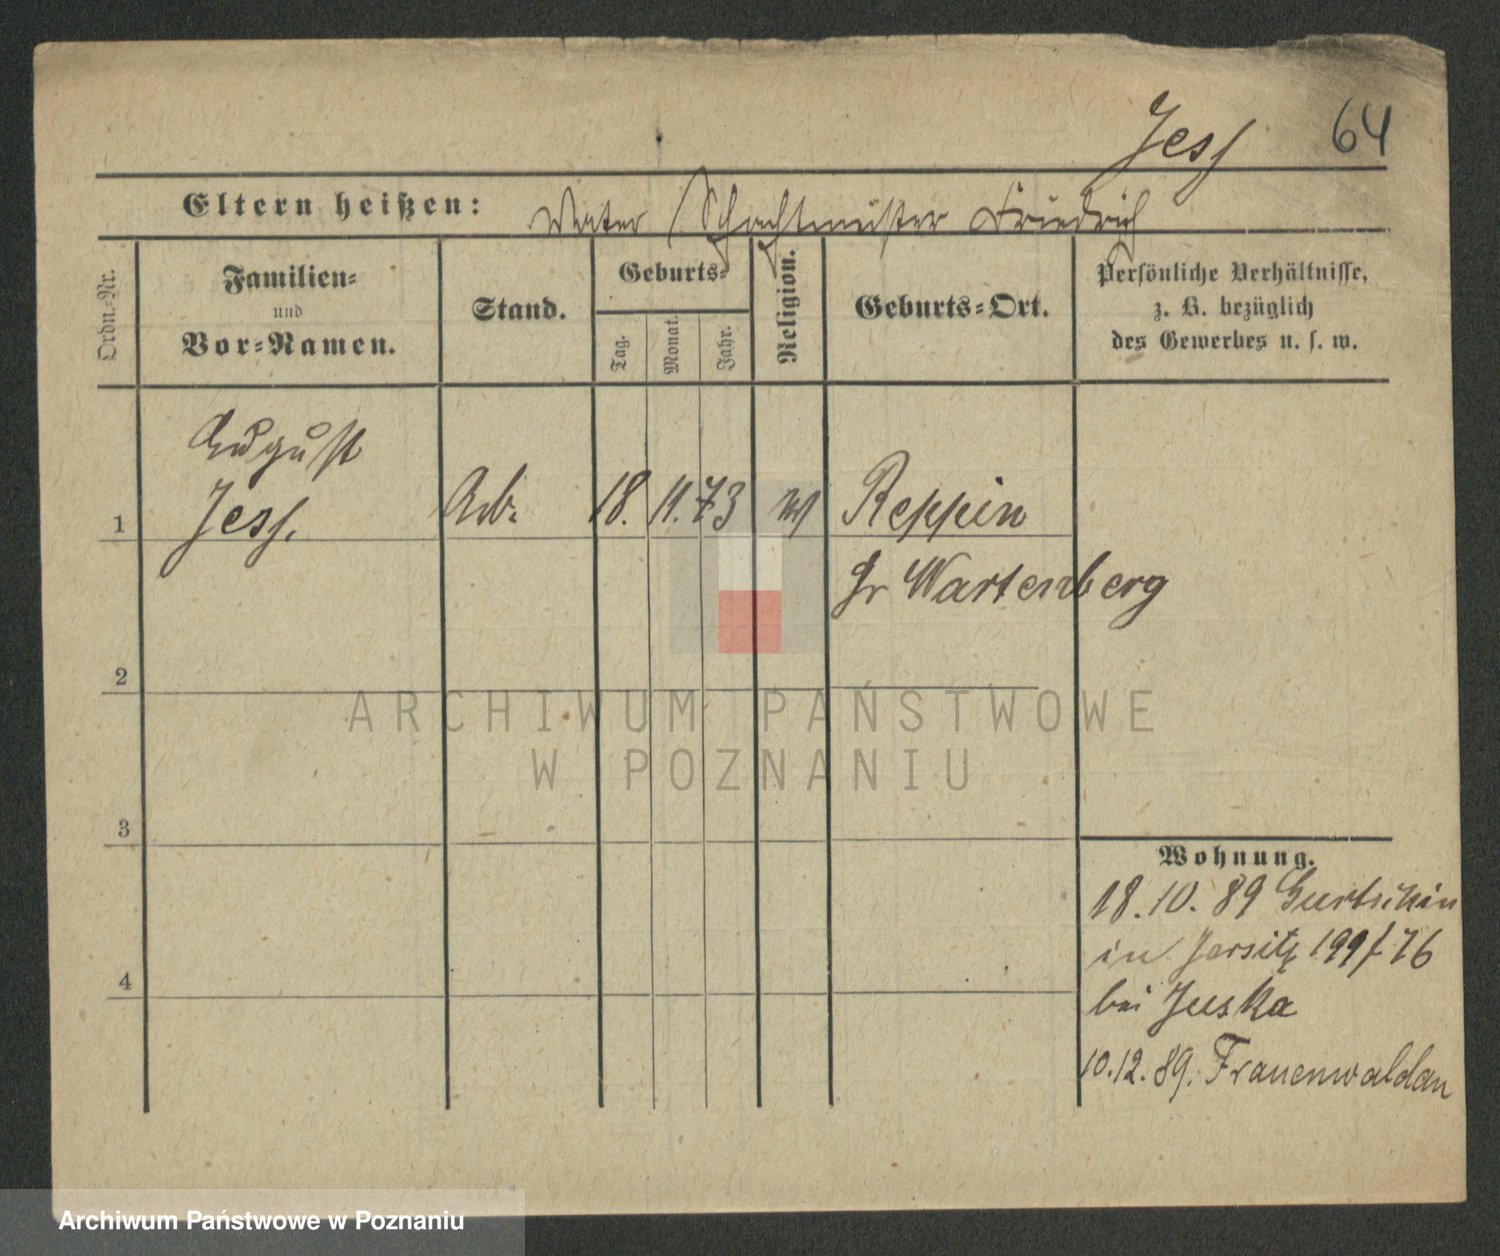 Jess 64
Eltern heißen: Vater Schachtmeister Friedrich
Ordn.-Nr.
Familien-
und
Vor-Namen.
Stand.
Geburts-
Tag.
Monat.
Jahr.
Religion.
Geburts-Ort.
Persönliche Verhältnisse,
z. B. bezüglich
des Gewerbes u. s. w.
August
1 Jess. Arb. 18. 11. 73 Reppin
Gr Wartenberg
2
ARCHIWUM PAŃSTWOWE
W POZNANIU
3
Wohnung.
18. 10. 89 Gurtschin
in Jersitz 199/76
bei Juska
4
10. 12. 89. Frauenwaldau
Archiwum Państwowe w Poznaniu